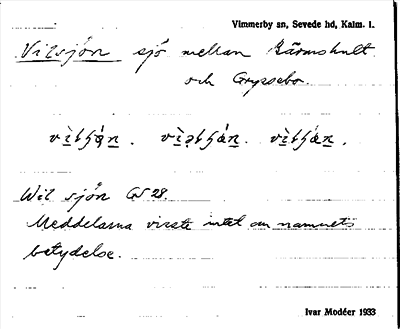 Vimmerby sn, Sevede hd, Kalm. l.
Vilsjön sjö mellan Kärnshult
och Gryssebo.
Wil sjön GS 28.
Meddelarna visste intet om namnets
betydelse.
Ivar Modéer 1933